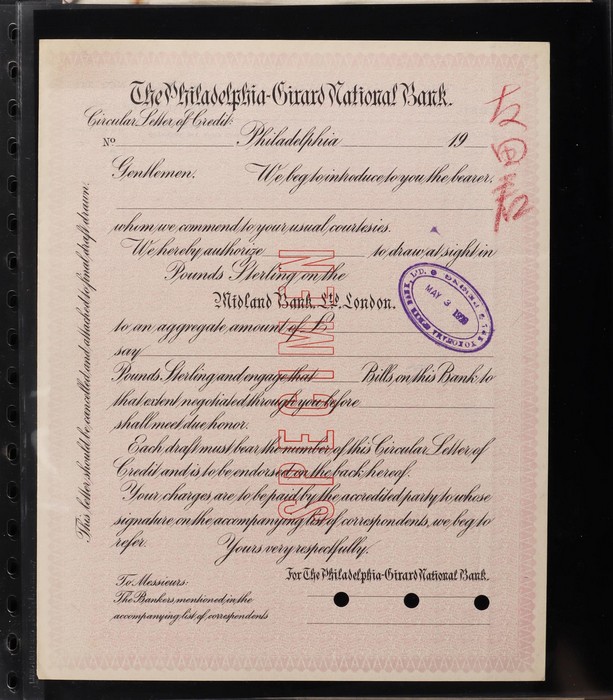 The Philadelphia-Girard National Bank.
Circular Letter of Credit:
No Philadelphia 19
Gentlemen. We beg to introduce to you the bearer,
whom we commend to your usual courtesies.
We hereby authorize to draw at sight in
Pounds Sterling on the
Midland Bank, Ltd., London.
to an aggregate amount of £
say
Pounds Sterling and engage that Bills, on this Bank to
that extent, negotiated through you before
shall meet due honor.
Each draft must bear the number of this Circular Letter of
Credit and is to be endorsed on the back hereof.
Your charges are to be paid by the accredited party to whose
signature on the accompanying list of correspondents, we beg to
refer. Yours very respectfully.
For The Philadelphia-Girard National Bank.
To Messieurs:
The Bankers, mentioned, in the
accompanying list, of correspondents
This letter should be cancelled and attached to final draft drawn.
SPECIMEN
MAY 3